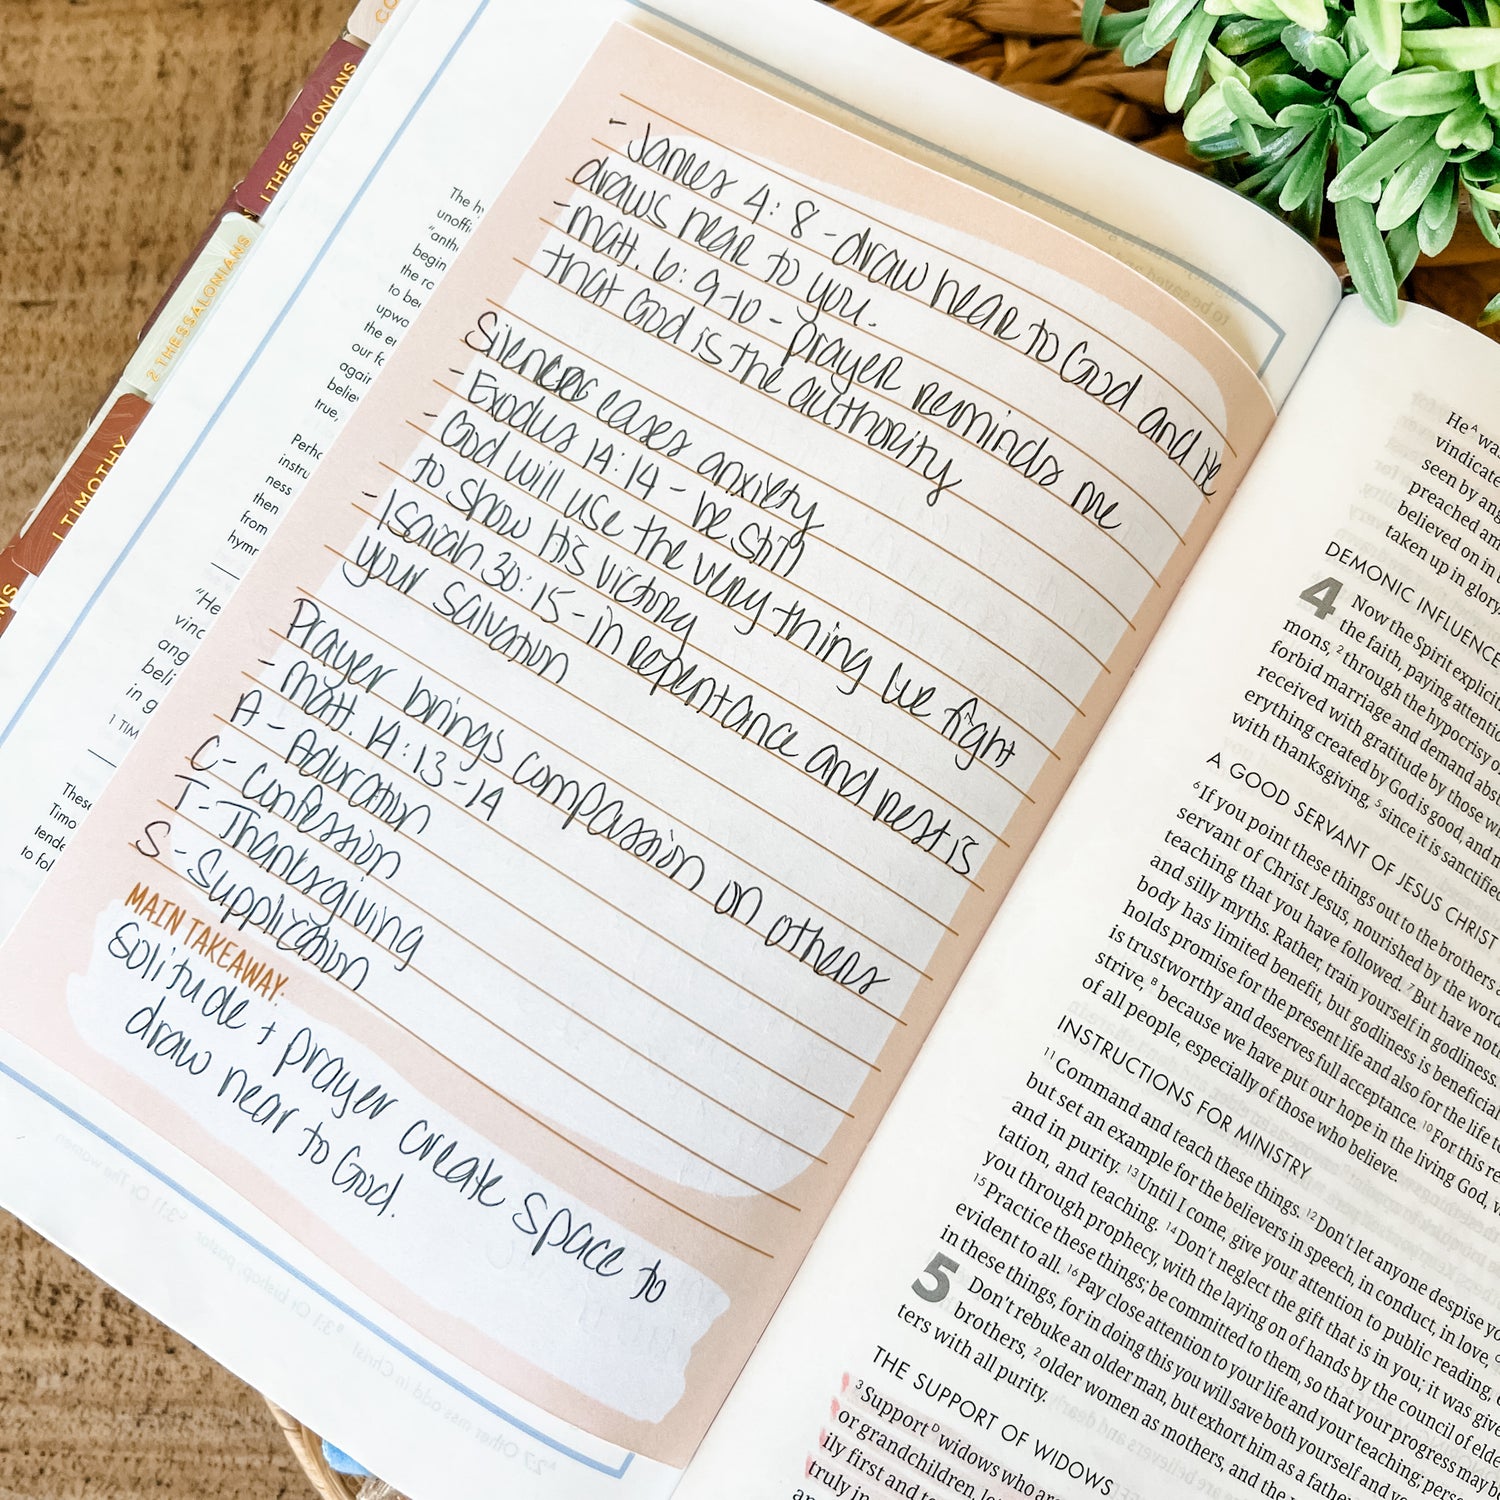 CO
1 THESSALONIANS
2 THESSALONIANS
1 TIMOTHY
NS
- James 4:8 - draw near to God and He
draws near to you.
- Matt. 6:9-10 - prayer reminds me
that God is the authority
Silence eases anxiety
- Exodus 14:14 - be still
- God will use the very thing we fight
to show His victory
- Isaiah 30:15 - in repentance and rest is
your salvation
Prayer brings compassion on others
- Matt. 14:13-14
A - Adoration
C - Confession
T - Thanksgiving
S - Supplication
MAIN TAKEAWAY:
Solitude + prayer create space to
draw near to God.
The hy
unoffi
"anth
begin
the ro
to be
upwo
the e
our fo
again
believ
true,
Perho
instru
ness
then
from
hymn
"He
vinc
ang
beli
in g
1 TIM
These
Timo
tende
to fol
He A was
vindicate
seen by ang
preached am
believed on in t
taken up in glory.
DEMONIC INFLUENCE
4 Now the Spirit explicit
the faith, paying attentio
mons, 2 through the hypocrisy o
forbid marriage and demand abst
received with gratitude by those w
erything created by God is good, and n
with thanksgiving, 5 since it is sanctified
A GOOD SERVANT OF JESUS CHRIST
6 If you point these things out to the brothers a
servant of Christ Jesus, nourished by the word
teaching that you have followed. 7 But have noth
and silly myths. Rather, train yourself in godliness.
body has limited benefit, but godliness is beneficial
holds promise for the present life and also for the life to
is trustworthy and deserves full acceptance. 10 For this re
strive, 8 because we have put our hope in the living God, w
of all people, especially of those who believe.
INSTRUCTIONS FOR MINISTRY
11 Command and teach these things. 12 Don't let anyone despise yo
but set an example for the believers in speech, in conduct, in love,
and in purity. 13 Until I come, give your attention to public reading,
tation, and teaching. 14 Don't neglect the gift that is in you; it was give
you through prophecy, with the laying on of hands by the council of elde
15 Practice these things; be committed to them, so that your progress may b
evident to all. 16 Pay close attention to your life and your teaching; pers
in these things, for in doing this you will save both yourself and yo
5 Don't rebuke an older man, but exhort him as a fath
brothers, 2 older women as mothers, and the y
ters with all purity.
THE SUPPORT OF WIDOWS
3 Support D widows who are
or grandchildren, let
ily first and to
truly in